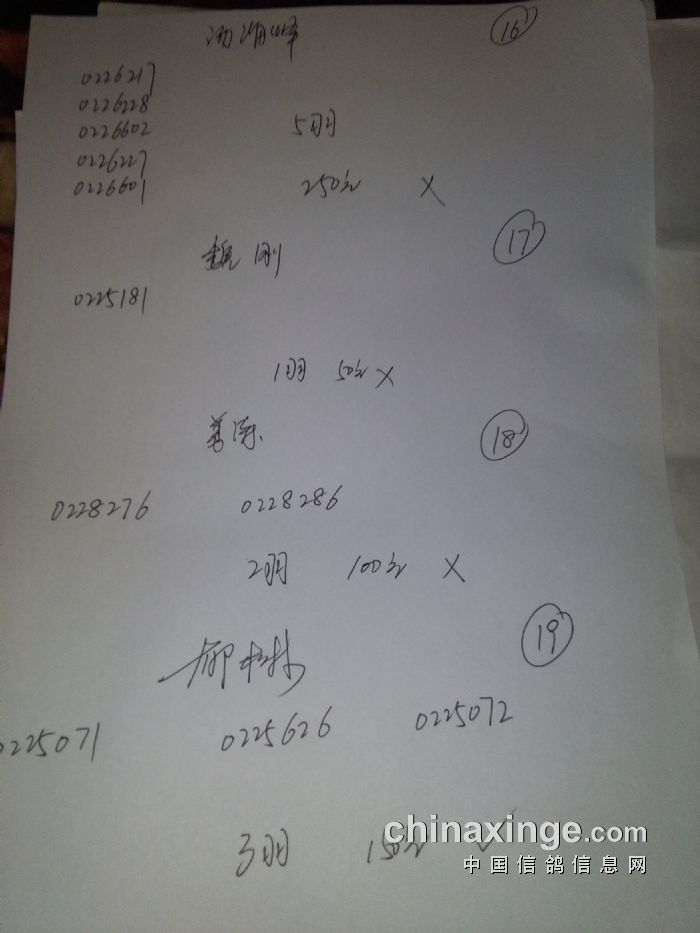 16
0226217
0226228
0226602 5羽
0226227
0226601 250元 X
魏刚 17
0225181
1羽 50元 X
姜涛 18
0228276 0228286
2羽 100元 X
19
0225071 0225626 0225072
3羽 150元
chinaxinge.com
中国信鸽信息网